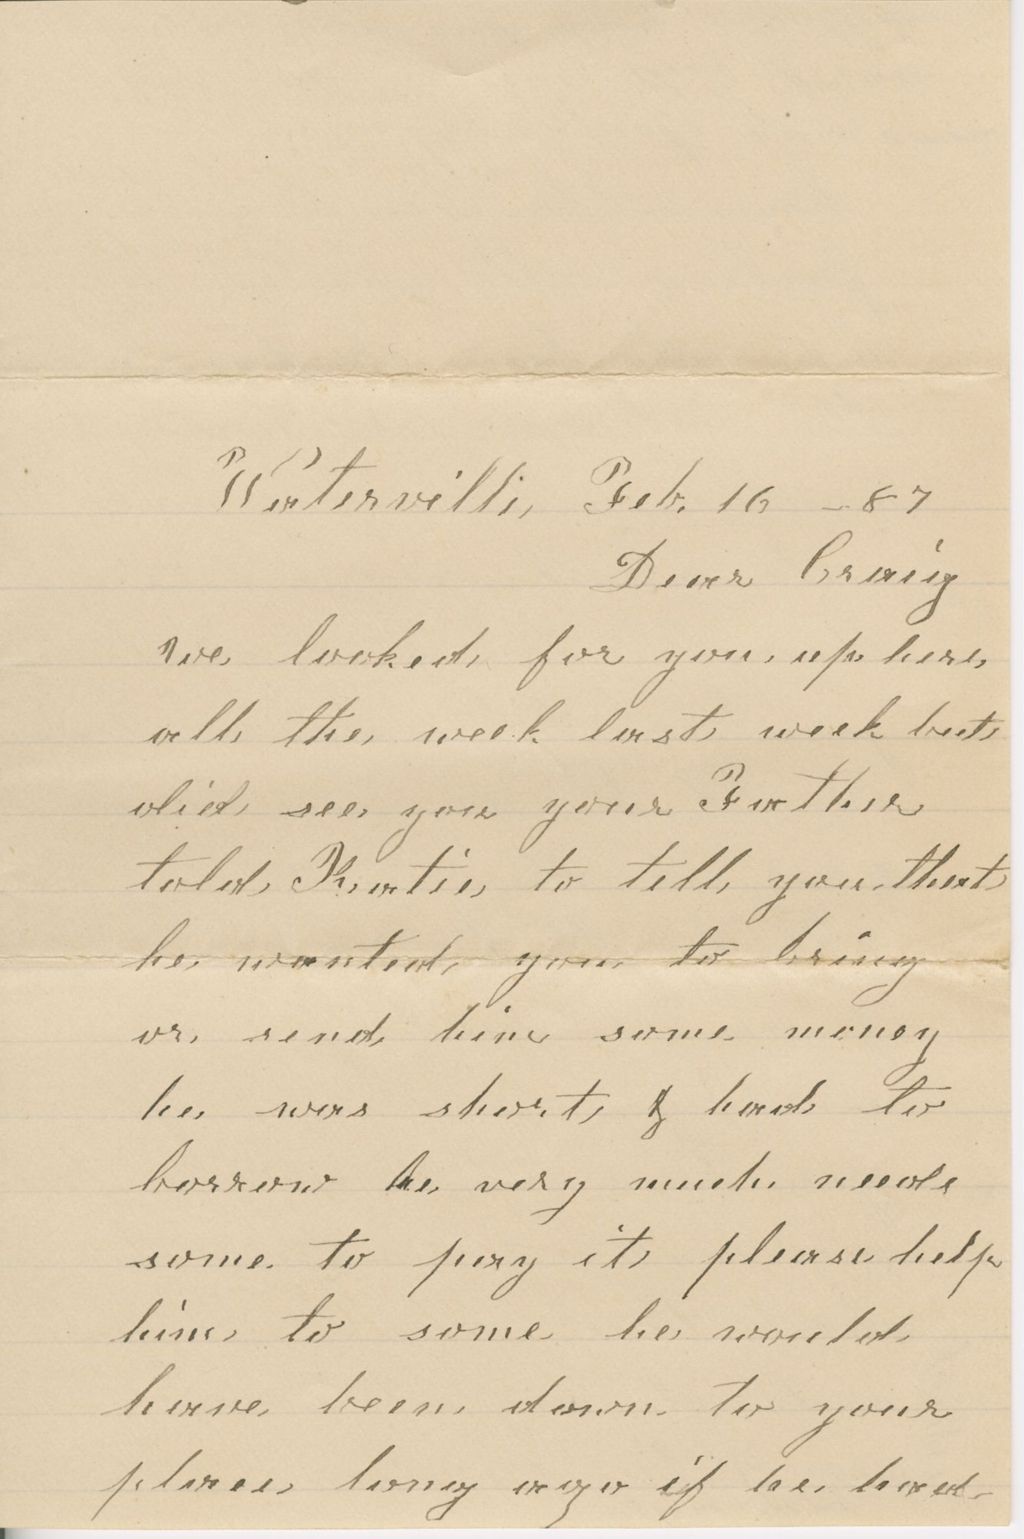 Waterville, Feb. 16 -87
Dear Craig
we looked for you up here
all the week last week but
did see you your Father
told Katie to tell you that
he wanted you to bring
or send him some money
he was short & had to
borrow he very much needs
some to pay it please help
him to some he would
have been down to your
place long ago if he had